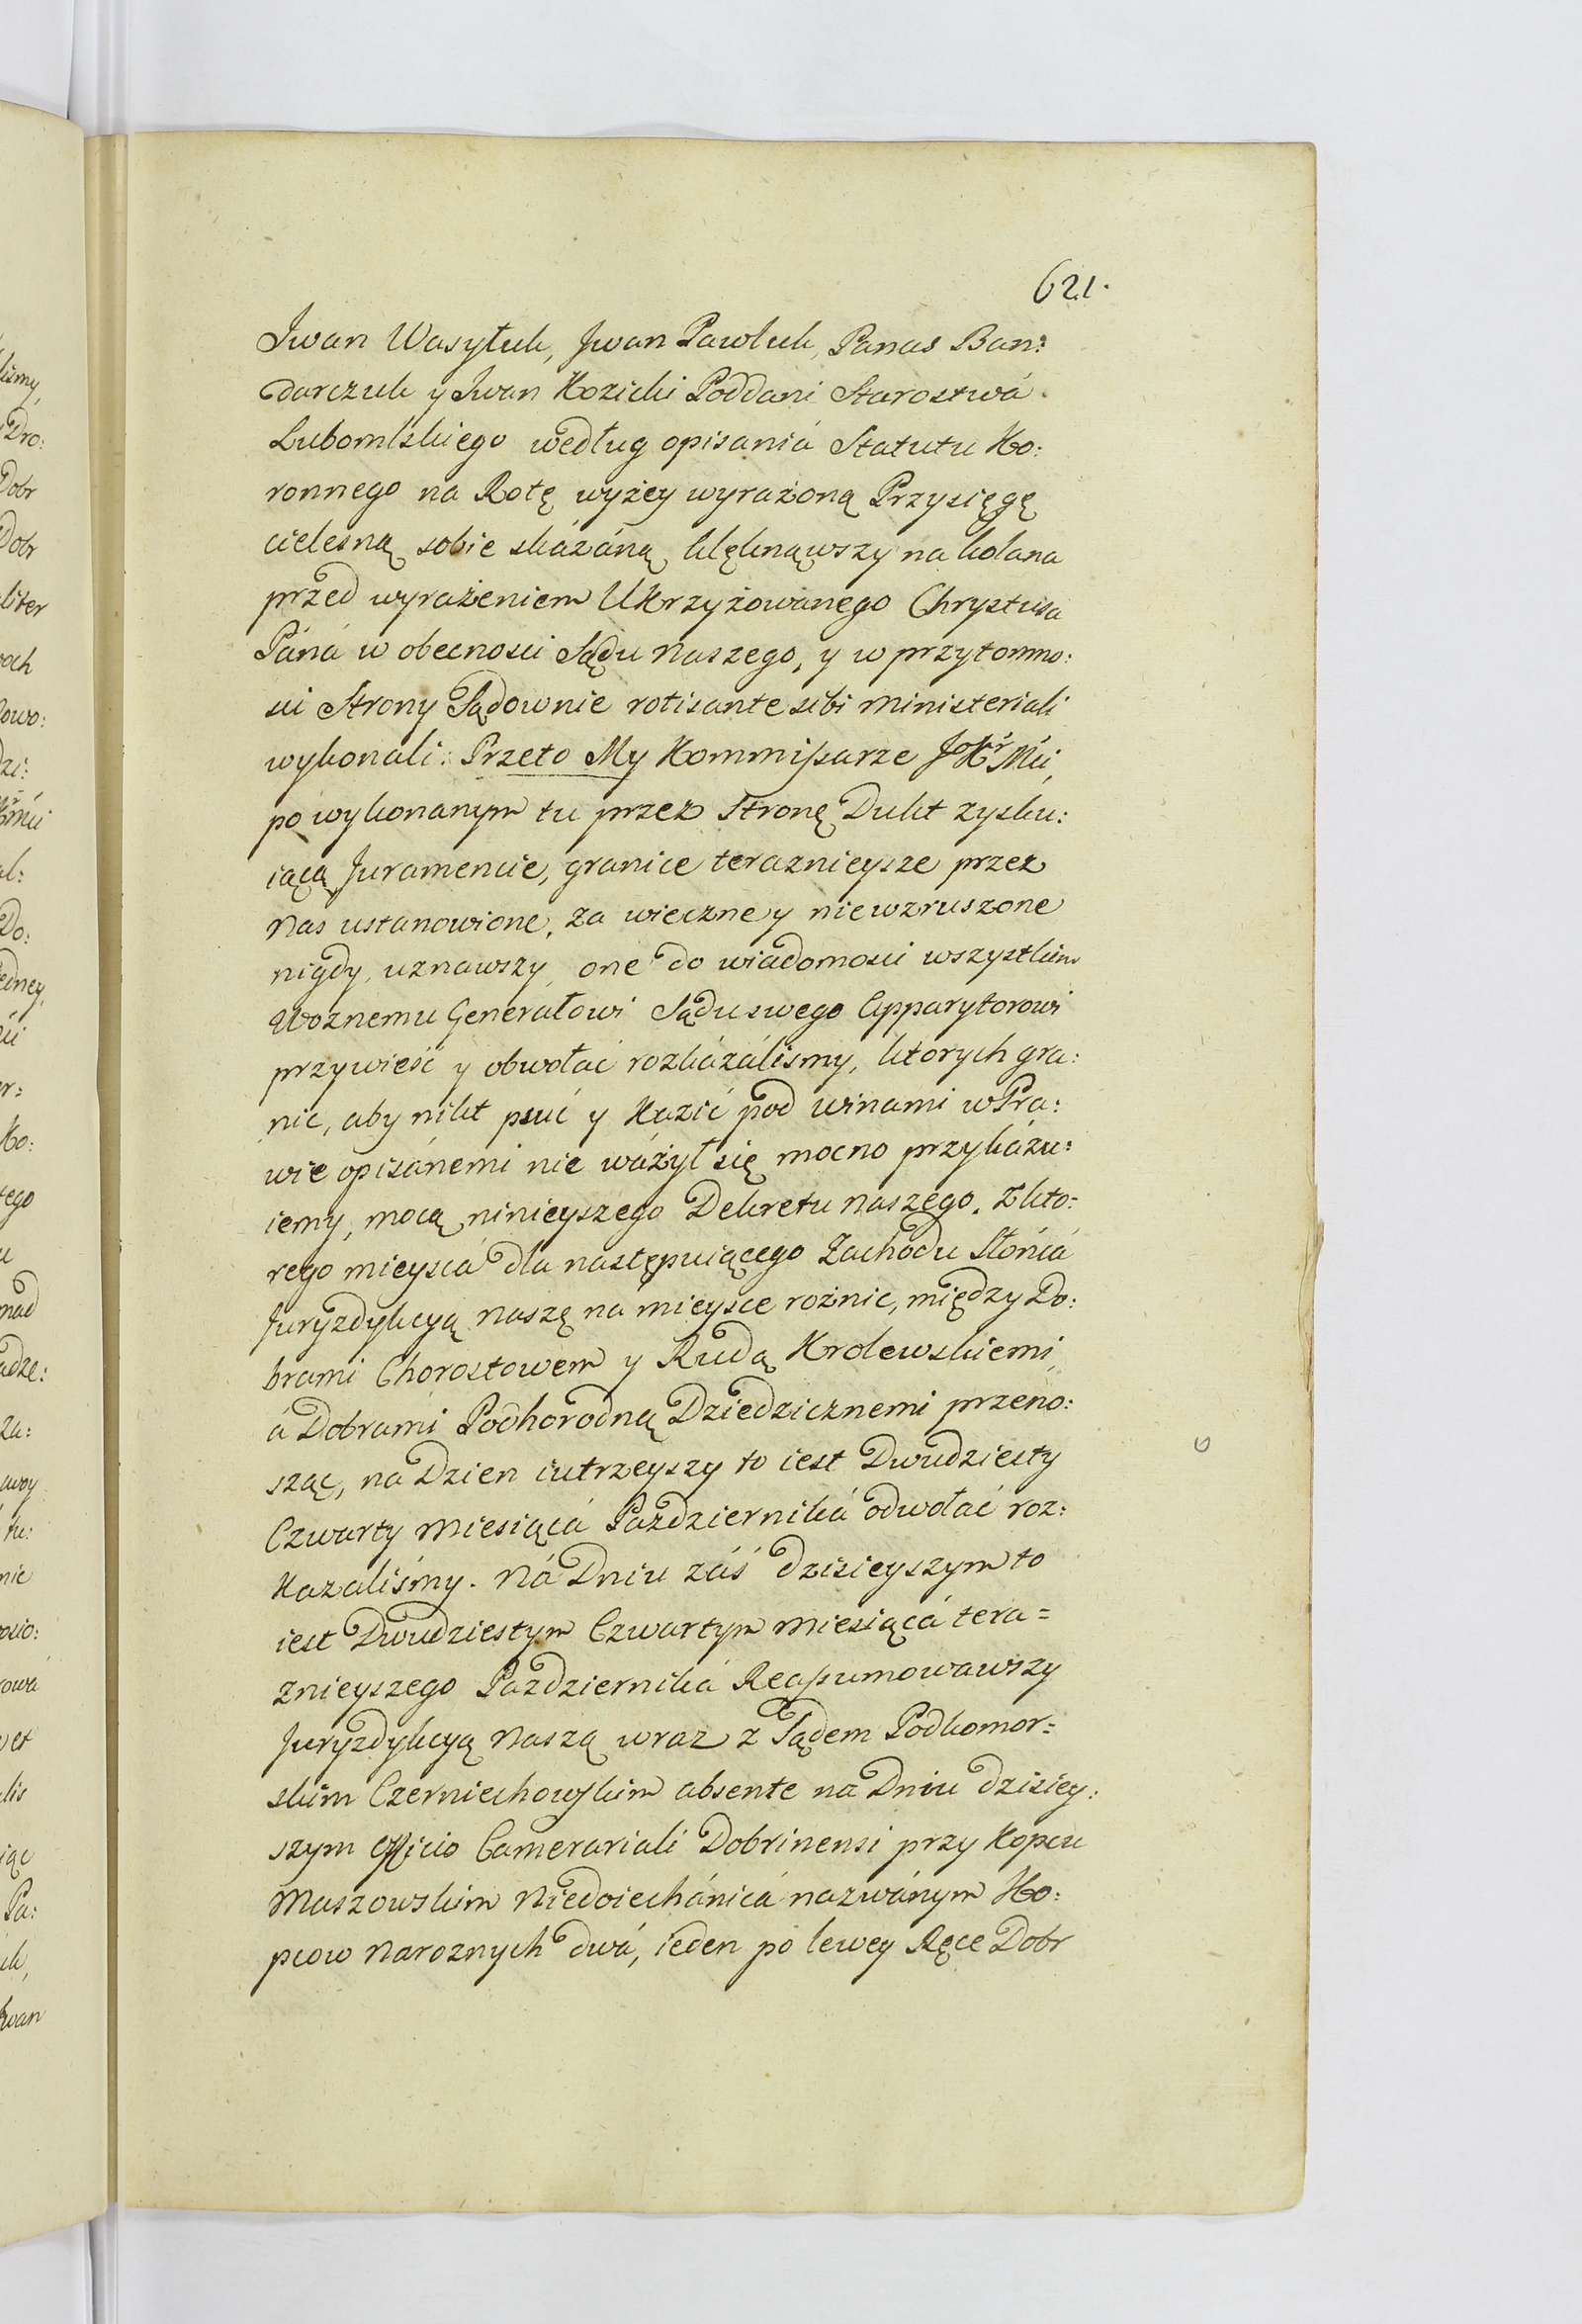 621.
Iwan Wasyluk, Iwan Pawluk, Panas Ban:
darczuk y Iwan Kozicki Poddani Starostwá
Lubomlskiego według opisaniá Statutu Ko:
ronnego na Rotę wyżey wyrażoną Przysięgę
cielesną sobie skázáną klęknąwszy na kolana
przed wyrażeniem Ukrzyżowanego Chrystusa
Páná w obecnosci Sądu naszego, y w przytomno:
sci Strony Sądownie rotisante sibi ministeriali
wykonali: Przeto My Kommissarze JoKr Mci,
po wykonanym tu przez Stronę Dukt zysku:
iącą Juramencie, granice teraznieysze przez
nas ustanowione, za wieczne y niewzruszone
nigdy, uznawszy, one do wiadomosci wszystkim
Woznemu Generałowi Sądu swego Apparytorowi
przywieść y obwołać rozkázálismy, ktorych gra:
nic, aby nikt psuć y Kazić pod winami w Pra:
wie opisánemi nie wáżył się mocno przykázu:
iemy, mocą ninieyszego Dekretu naszego. Z kto:
rego mieyscá dla następuiącego Zachodu Słońcá
Juryzdykcyą naszę na mieysce rożnic, między Do:
brami Chorostowem y Rudą Krolewskiemi,
á Dobrami Podhorodną Dziedzicznemi przeno:
sząc, na Dzien iutrzeyszy to iest Dwudziesty
Czwarty Miesiącá Pazdziernika odwołać roz:
Kazaliśmy. Ná Dniu záś dzisieyszym to
iest Dwudziestym Czwartym Miesiącá tera=
znieyszego Pazdzierniká Reassumowawszy
Juryzdykcyą Naszą wraz z Sądem Podkomor=
skim Czerniechowskim absente na Dniu dzisiey:
szym Officio Camerariali Dobrinensi przy Kopcu
Maszowskim Niedoiechánicá nazwánym Ko:
pcow Naroznych dwá, ieden po lewey Ręce Dobr